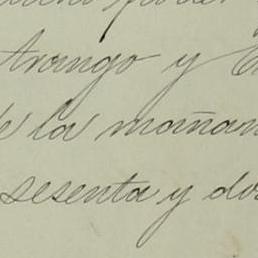 Arango y
de la mañan
sesenta y dos